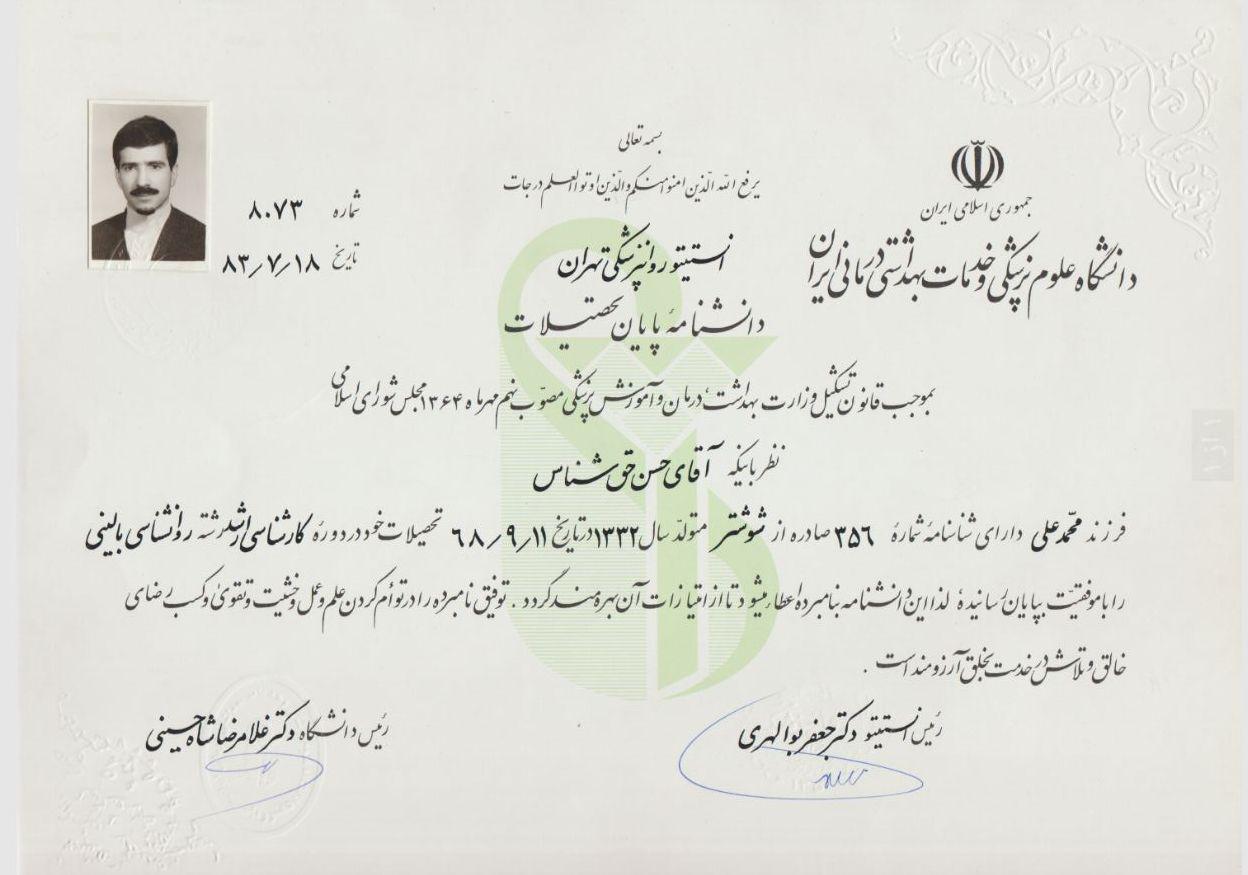 بسمه تعالی
یرفع الله الذین امنو منکم والذین اوتوا العلم درجات
جمهوری اسلامی ایران
دانشگاه علوم پزشکی و خدمات بهداشتی درمانی ایران
انستیتو روانپزشکی تهران
دانشنامهٔ پایان تحصیلات
شماره ۸۰۷۳
تاریخ ۸۳/۷/۱۸
بموجب قانون تشکیل وزارت بهداشت، درمان و آموزش پزشکی مصوّب نهم مهرماه ۱۳۶۴ مجلس شورای اسلامی
نظر باینکه آقای حسن حق شناس
فرزند محمّدعلی دارای شناسنامهٔ شمارهٔ ۳۵۶ صادره از شوشتر متولّد سال ۱۳۳۲ در تاریخ ۶۸/۹/۱۱ تحصیلات خود در دورهٔ کارشناسی ارشد رشته روانشناسی بالینی
را با موفقیّت بپایان رسانیده لذا این دانشنامه بنامبرده اعطاء میشود تا از امتیازات آن بهره‌مند گردد . توفیق نامبرده را در توأم کردن علم و عمل و خشیت و تقوی و کسب رضای
خالق و تلاش در خدمت بخلق آرزومند است .
رئیس انستیتو دکتر جعفر بوالهری
رئیس دانشگاه دکتر غلامرضا شاه حسینی
۱ از ۱